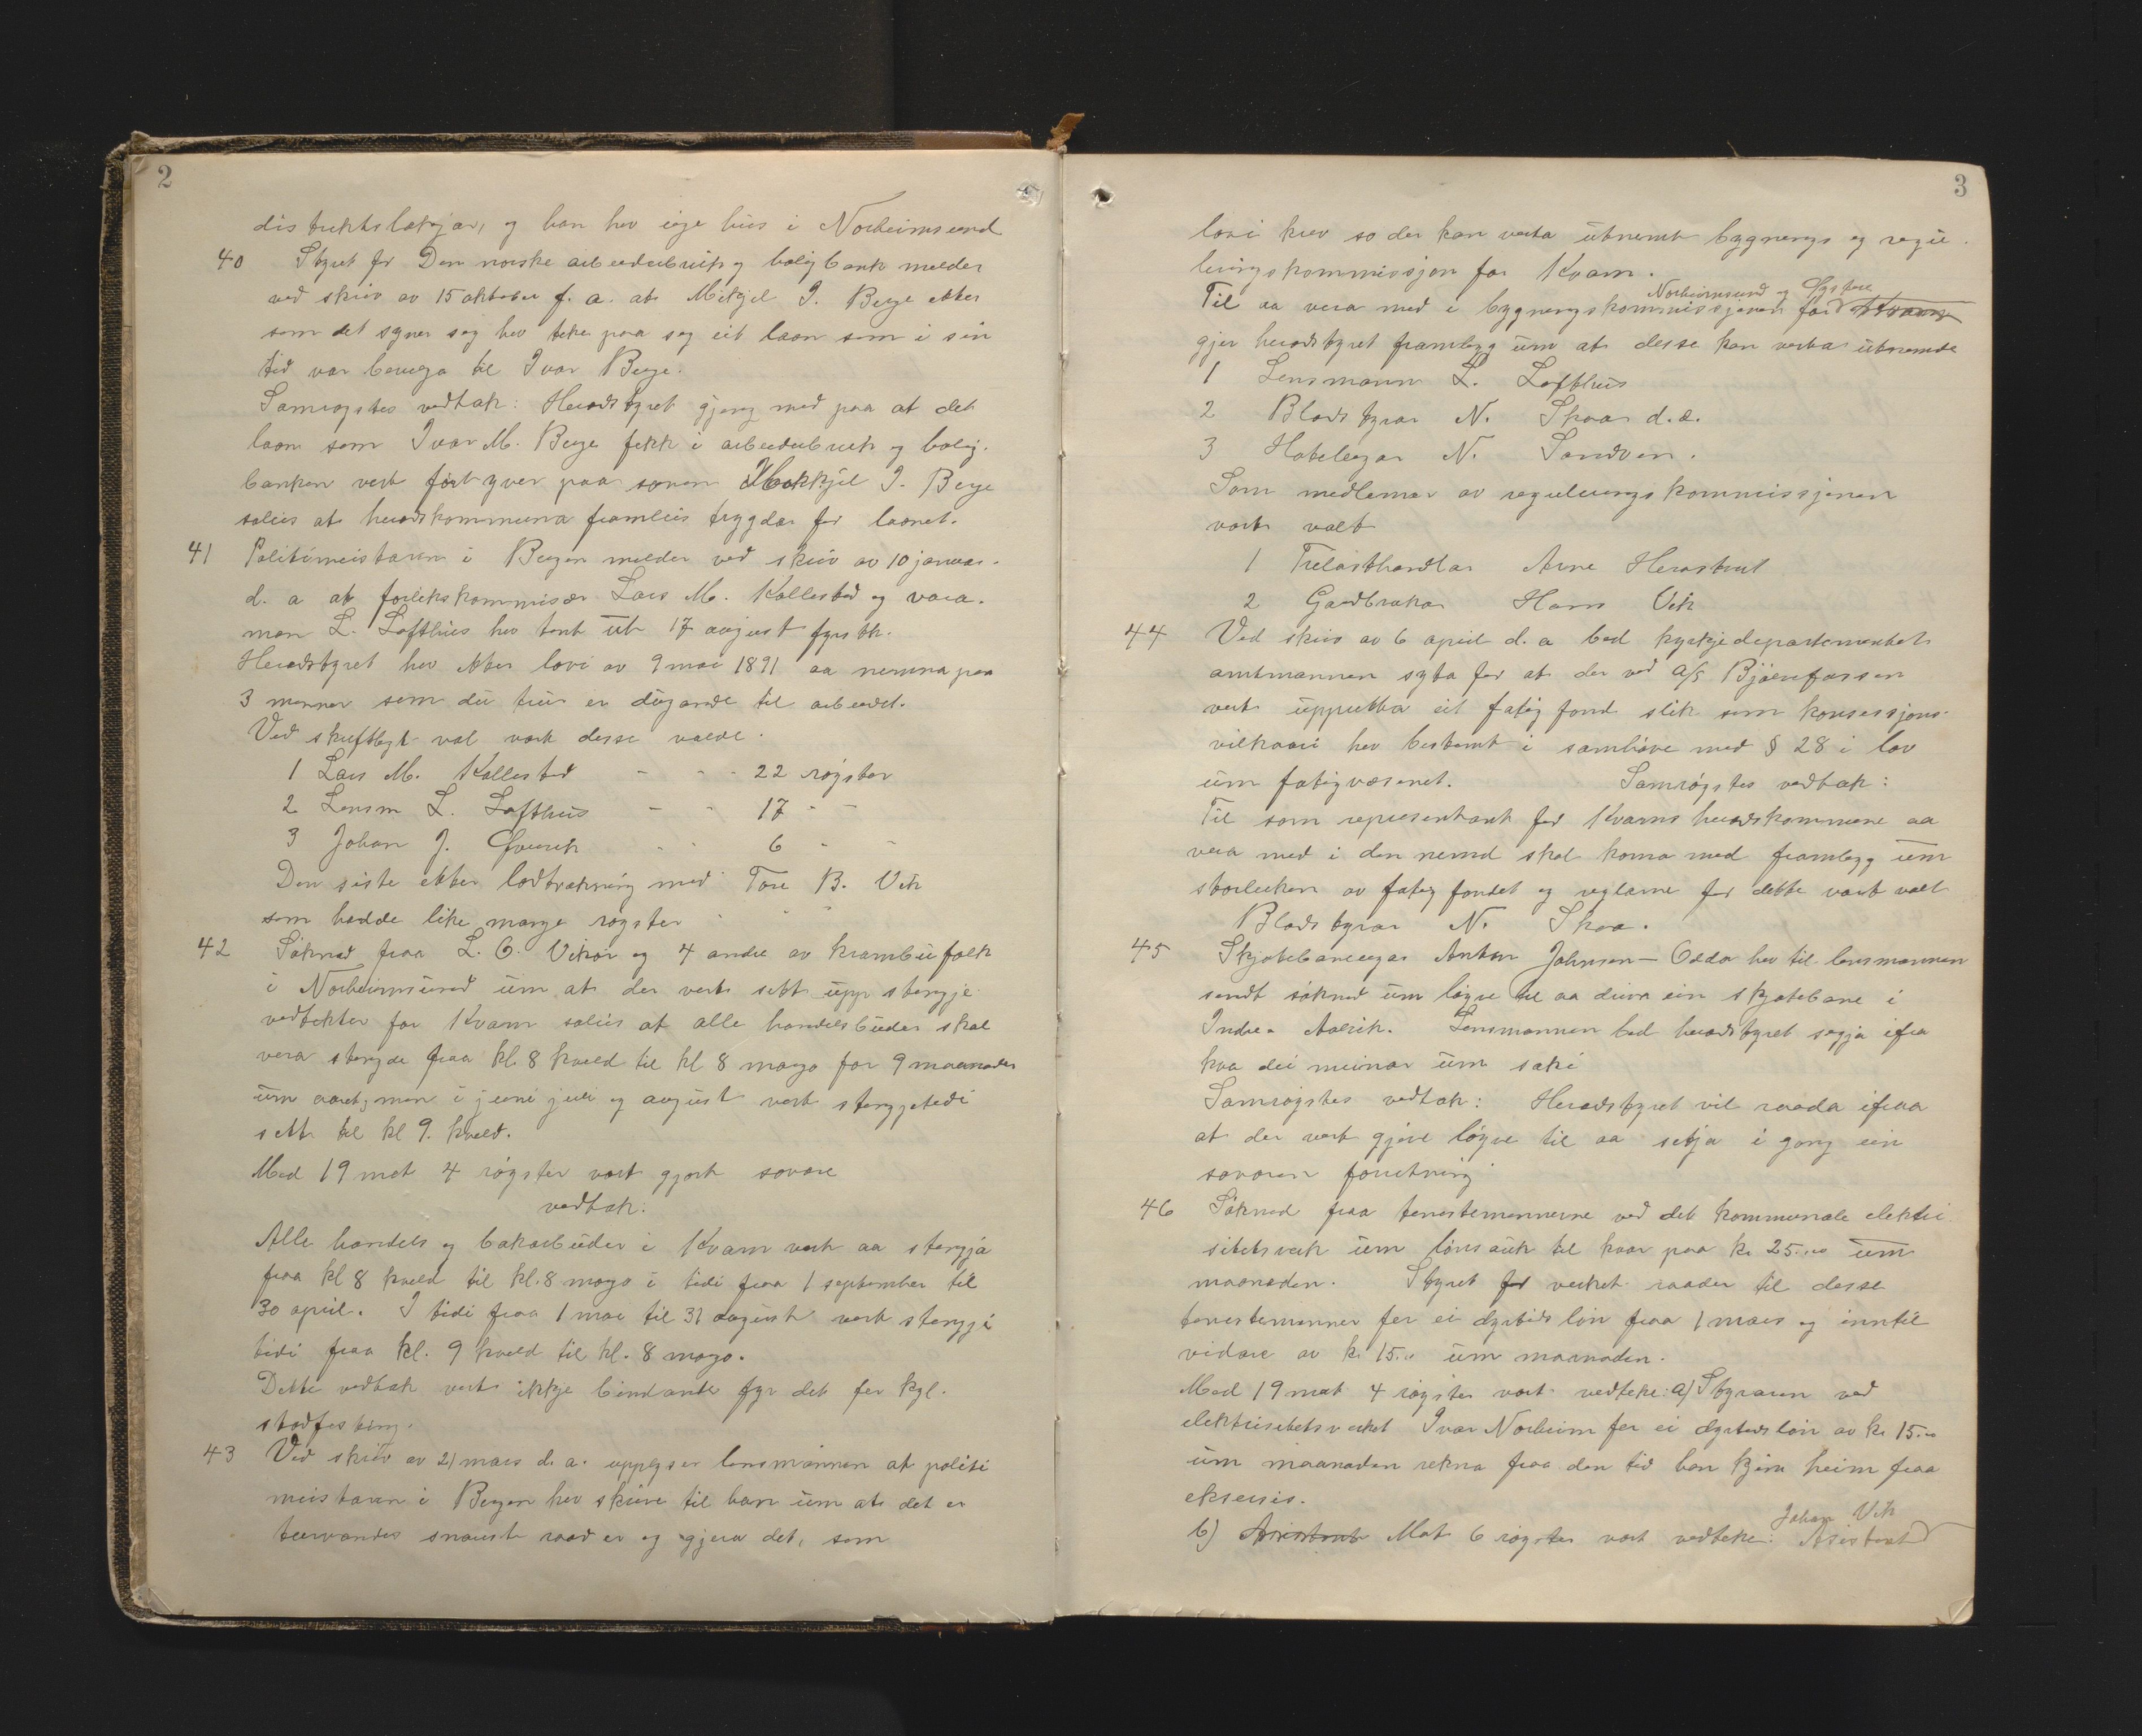 2
distriktslækjar, og han hev eige hus i Norheimsund
40 Styret for Den norske arbeidarbruk og boligbank melder
ved skriv av 15 oktober f. a. at Mikjel I. Berge etter
som det syner seg hev teke paa seg eit laan som i sin
tid var beviga til Ivar Berge.
Samrøystes vedtak: Heradstyret gjeng med paa at det
laan som Ivar M. Berge fekk i arbeidarbruk og bolig-
banken vert fört yver paa sonen Mikkjel I. Berge
soleis at heradskommuna framleis tryggdar for laanet.
41 Politimeistaren i Bergen melder ved skriv av 10 januar
d. a at forlikskommisær Lars M. Kollestad og vara-
man L. Lofthus hev tent ut 17 august fyrstk.
Heradstyret hev etter lovi av 9 mai 1891 aa nemna paa
3 menner som dei trur er dugande til arbeidet.
Ved skriftlegt val vart desse valde.
1 Lars M. Kollestad - - - 22 røyster
2 Lensm L. Lofthus - - 17 - -
3 Johan J. Qverik - - 6 - -
Den siste etter lodtrækning med Tore B. Vik
som hadde like mange røyster
42 Söknad fraa L. O. Vikör og 4 andre av krambufolk
i Norheimsund um at der vert sett upp stengje
vedtekter for Kvam soleis at alle handelsbuder skal
vera stengde fraa kl. 8 kveld til kl 8 morgo for 9 maanader
um aaret, men i juni juli og august vert stengjetidi
sett til kl 9. kveld.
Med 19 mot 4 røyster vart gjort sovore
vedtak:
Alle handels og bakarbuder i Kvam vert aa stengja
fraa kl 8 kveld til kl. 8 morgo i tidi fraa 1 september til
30 april. I tidi fraa 1 mai til 31 august vert stengji
tidi fraa kl. 9 kveld til kl. 8 morgo.
Dette vedtak vert ikkje bindande fyr det fer kgl.
stadfesting.
43 Ved skriv av 21 mars d. a. upplyser lensmannen at politi
meistaren i Bergen hev skrive til han um at det er
turvande snarast raad er og gjera det, som
3
lovi krev so der kan verta utnemt bygnings og regu-
leringskommissjon for Kvam.
Norheimsund og Øystese
Til aa vera med i bygningskommissjonen for Kvam
gjer heradstyret framlegg um at desse kan verta utnemde
1 Lensmann L. Lofthus
2 Bladstyrar N. Skaar d. e.
3 Hoteleigar N. Sandven.
Som medlemar av reguleringskommissjonen
vart valt
1 Trelasthandlar Arne Herastveit
2 Gardbrukar Hans Vik
44 Ved skriv av 6 april d. a bed kyrkjedepartementet
amtmannen syta for at der ved A/S Bjölvefossen
vert uppretta eit fatigfond slik som konsesjons-
vilkaari hev bestemt i samhöve med § 28 i lov
um fatigvæsenet. Samrøystes vedtak:
Til som representant for Kvams heradskommune aa
vera med i den nemd skal koma med framlegg um
storleiken av fatigfondet og reglarne for dette vart valt
Bladstyrar N. Skaa.
45 Skjotebaneeigar Anton Johnsen — Odda hev til lensmannen
sendt söknad um löyve til aa driva ein skjotebane i
Indre Aalvik. Lensmannen bed heradstyret segja ifra
kva dei meinar um saki
Samrøystes vedtak: Heradstyret vil raada ifraa
at der vert gjeve löyve til aa setja i gang ein
sovoren forretning
46 Söknad fraa tenestemennerne ved det kommunale elektri
sitetsverk um lönsauk til kvar paa kr. 25.00 um
maanaden. Styret for verket raader til desse
tenestemenner fer ei dyrtidslön fraa 1 mars og inntil
vidare av kr 15.00 um maanaden.
Med 19 mot 4 røyster vart vedteke: a) Styraren ved
elektrisitetsverket Ivar Norheim fer ei dyrtidslön av kr 15.00
um maanaden rekna fraa den tid han kjem heim fraa
eksersis.
Johan Vik
b) Assistent Mot 6 røyster vart vedteke: Asistent